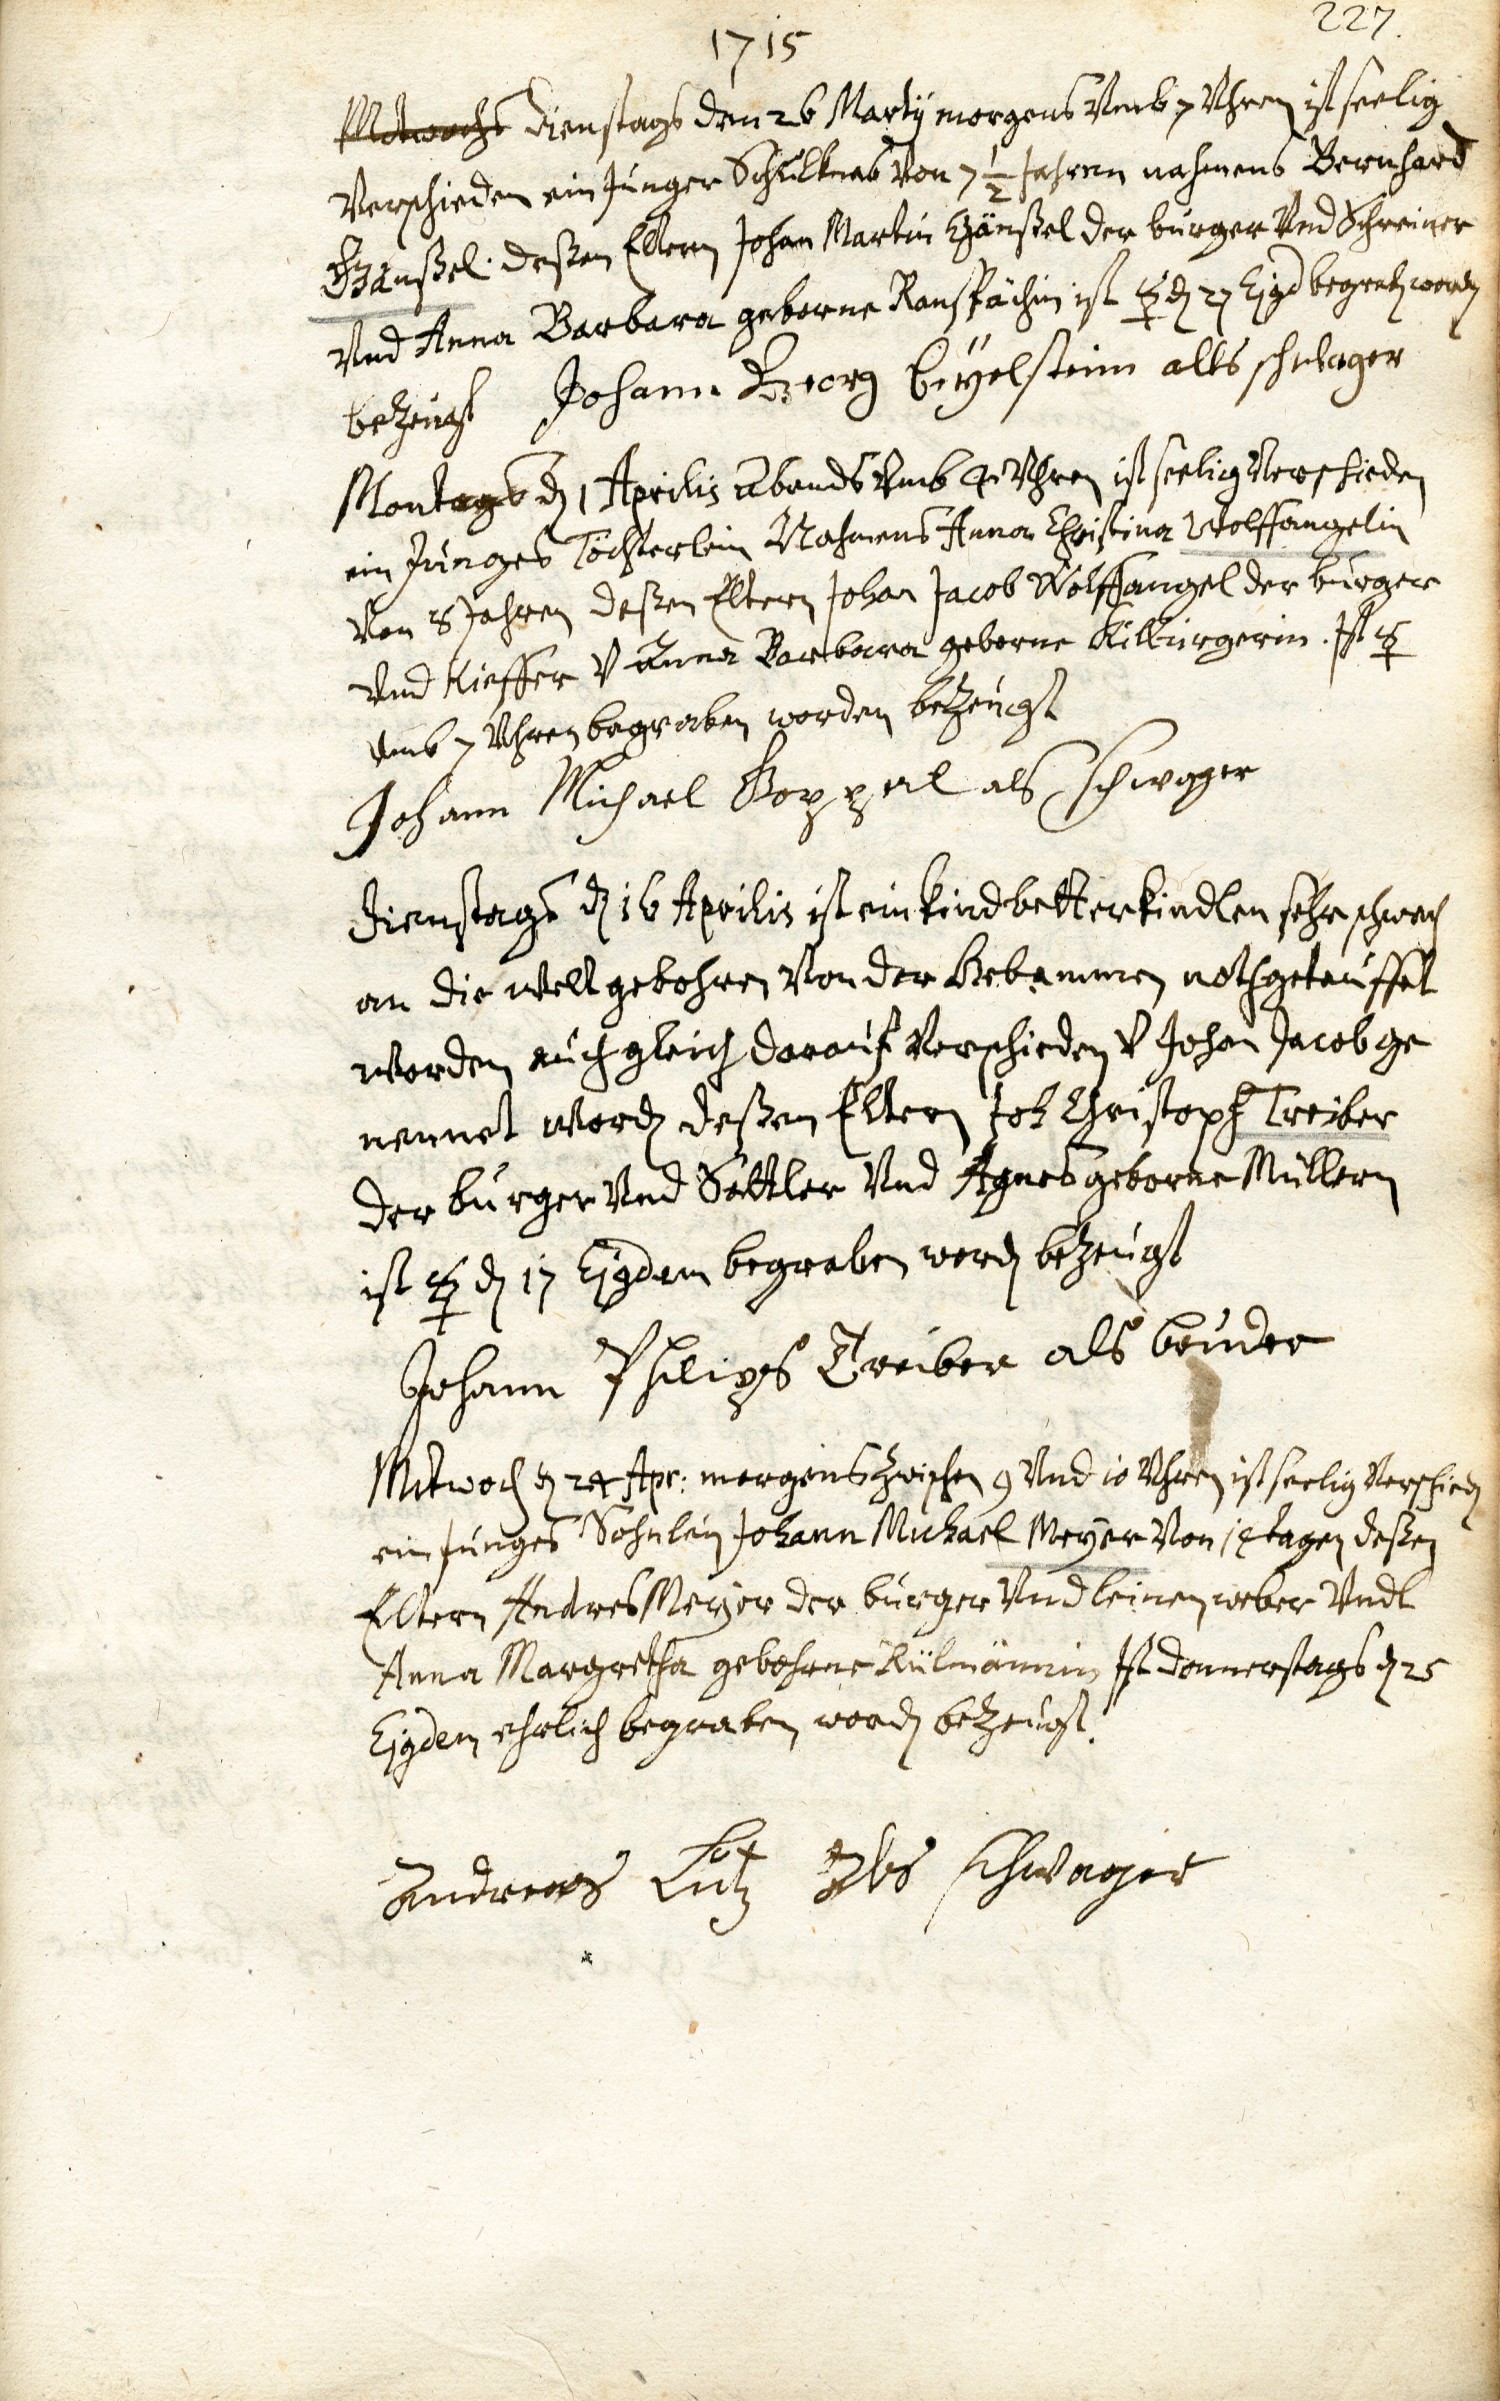 1715
227.
Mitwochs Dienstags den 26 Martij morgens Vmb 7 Vhren ist seelig
Verschieden ein Junger Schulknab Von 7 1/2 Jahren nahmens Bernhard
Gänßel. deßen Eltern Johan Martin Gänßel der burger Vnd Schreiner
Vnd Anna Barbara geborne Ranspächin ist dʒ 27 Ejgd begrab word
bezeugt Johann Georg beÿelstein alls schwager
Montags d 1 Aprilis abends Vmb 4 Vhren ist seelig Verschieden
ein Junges Töchterlein Nahmens Anna Christina Wolffangelin
Von 8 Jahren deßen Eltern Johan Jacob Wolffangel der burger
Vnd Kieffer V Anna Barbara geborne. Ist
Vmb 7 Vhren begraben worden bezeugt
Johann Michael Goppel als schwager
Dienstags d 16 Aprilis ist ein kindbetterkindlen sehr schwach
an die welt gebohren Von der Hebammen nothgetauffet
worden auch gleich darauf Verschieden V Johan Jacob ge
nennet word deßen Eltern Joh Christoph Treiber
der burger Vnd Sattler Vnd Agnes geborne Müllern
ist d 17 Ejgdem begraben word bezeugt
Johann Philips Treiber als bruder
Mitwoch d 24 Apr: morgens Zwischen 9 Vnd 10 Vhren ist seelig Verschied
ein Junges Söhnlein Johann Michael Meyer Von 14 tagen deßen
Eltern Andres Meyer der burger Vnd leinenweber Vnd
Anna Margretha gebohrne Külmännin Ist donnerstags d 25
Ejgdem ehrlich begraben word bezeugt.
Andreas Lutz Als schwager